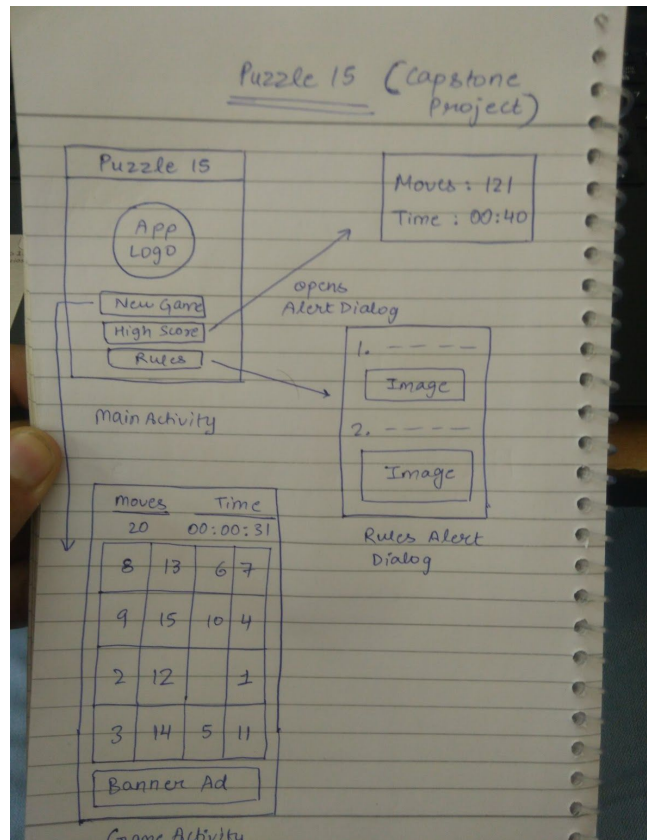 Puzzle 15 (Capstone
Project)
Puzzle 15
App
Logo
New Game
High Score
Rules
Main Activity
Moves : 121
Time : 00:40
opens
Alert Dialog
1. - - - -
Image
2. - - - -
Image
Rules Alert
Dialog
moves Time
20 00:00:31
8 13 6 7
9 15 10 4
2 12 1
3 14 5 11
Banner Ad
Game Activity